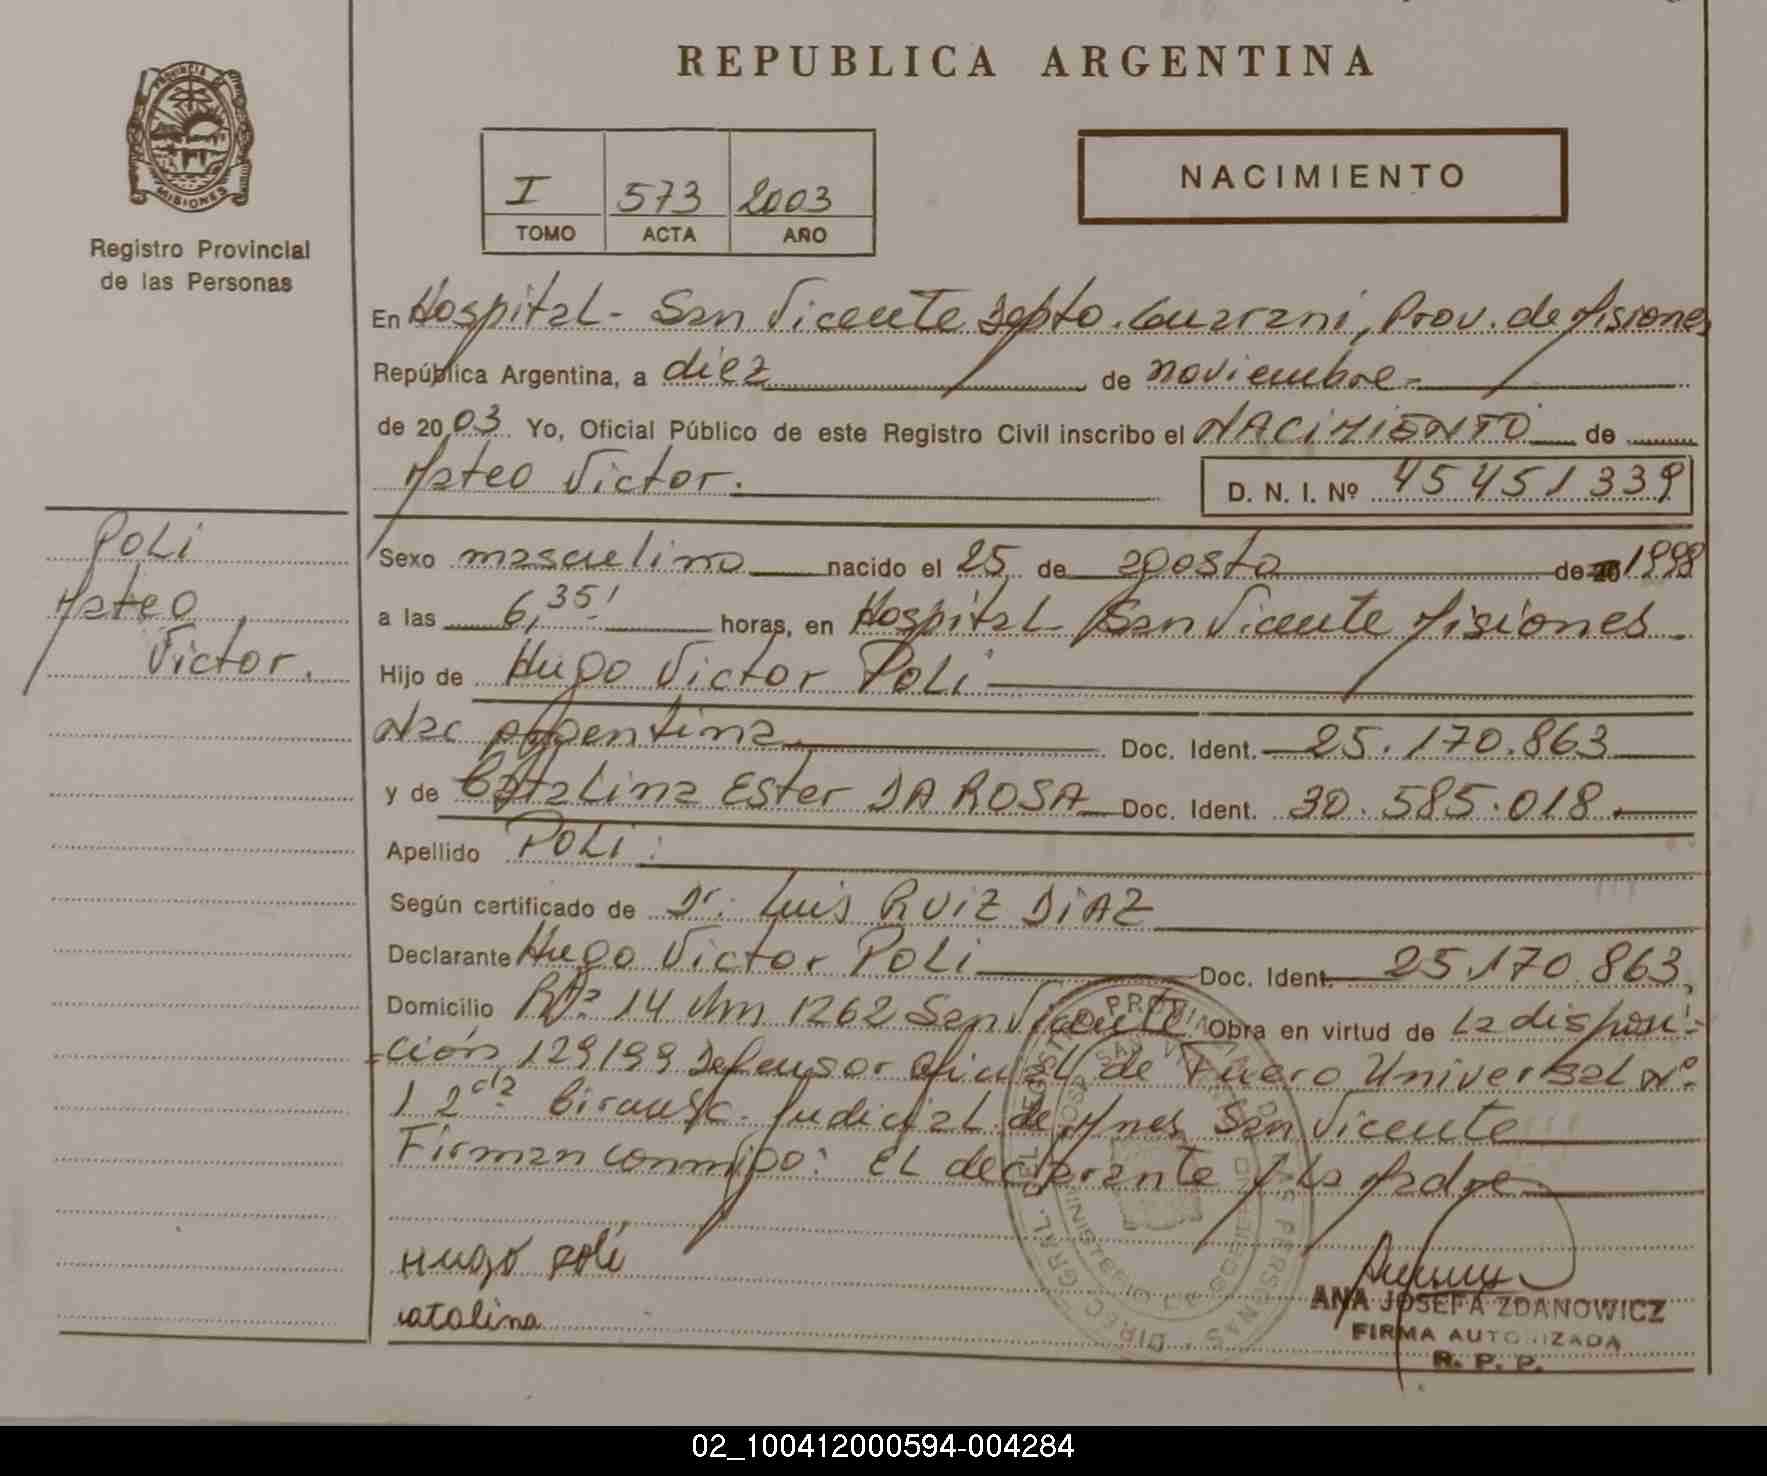 REPUBLICA ARGENTINA
PROVINCIA
MISIONES
Registro Provincial
de las Personas
I 573 2003
TOMO ACTA AÑO
NACIMIENTO
En Hospital - San Vicente Depto. Guarani, Prov. de Misiones
República Argentina, a diez de noviembre.
de 2003 Yo, Oficial Público de este Registro Civil inscribo el NACIMIENTO de
Mateo Victor. D. N. I. Nº 45451339
Poli
Mateo
Victor.
Sexo masculino nacido el 25 de agosto de 20 1998
a las 6,35' horas, en Hospital San Vicente Misiones.
Hijo de Hugo Victor Poli
Nac argentina. Doc. Ident. 25.170.863
y de Catalina Ester DA ROSA Doc. Ident. 30.585.018.
Apellido POLI.
Según certificado de Dr. Luis RUIZ DIAZ
Declarante Hugo Victor Poli Doc. Ident. 25.170.863,
Domicilio Rta 14 Km 1262 San Vicente Obra en virtud de La disposi-
ción 129/99 Defensor Oficial de Fuero Universal Nº
1 2da Circunsc. Judicial de Mnes San Vicente
Firman conmigo: el declarante y La Madre
HUGO Poli
catalina
ANA JOSEFA ZDANOWICZ
FIRMA AUTORIZADA
R. P. P.
02_100412000594-004284